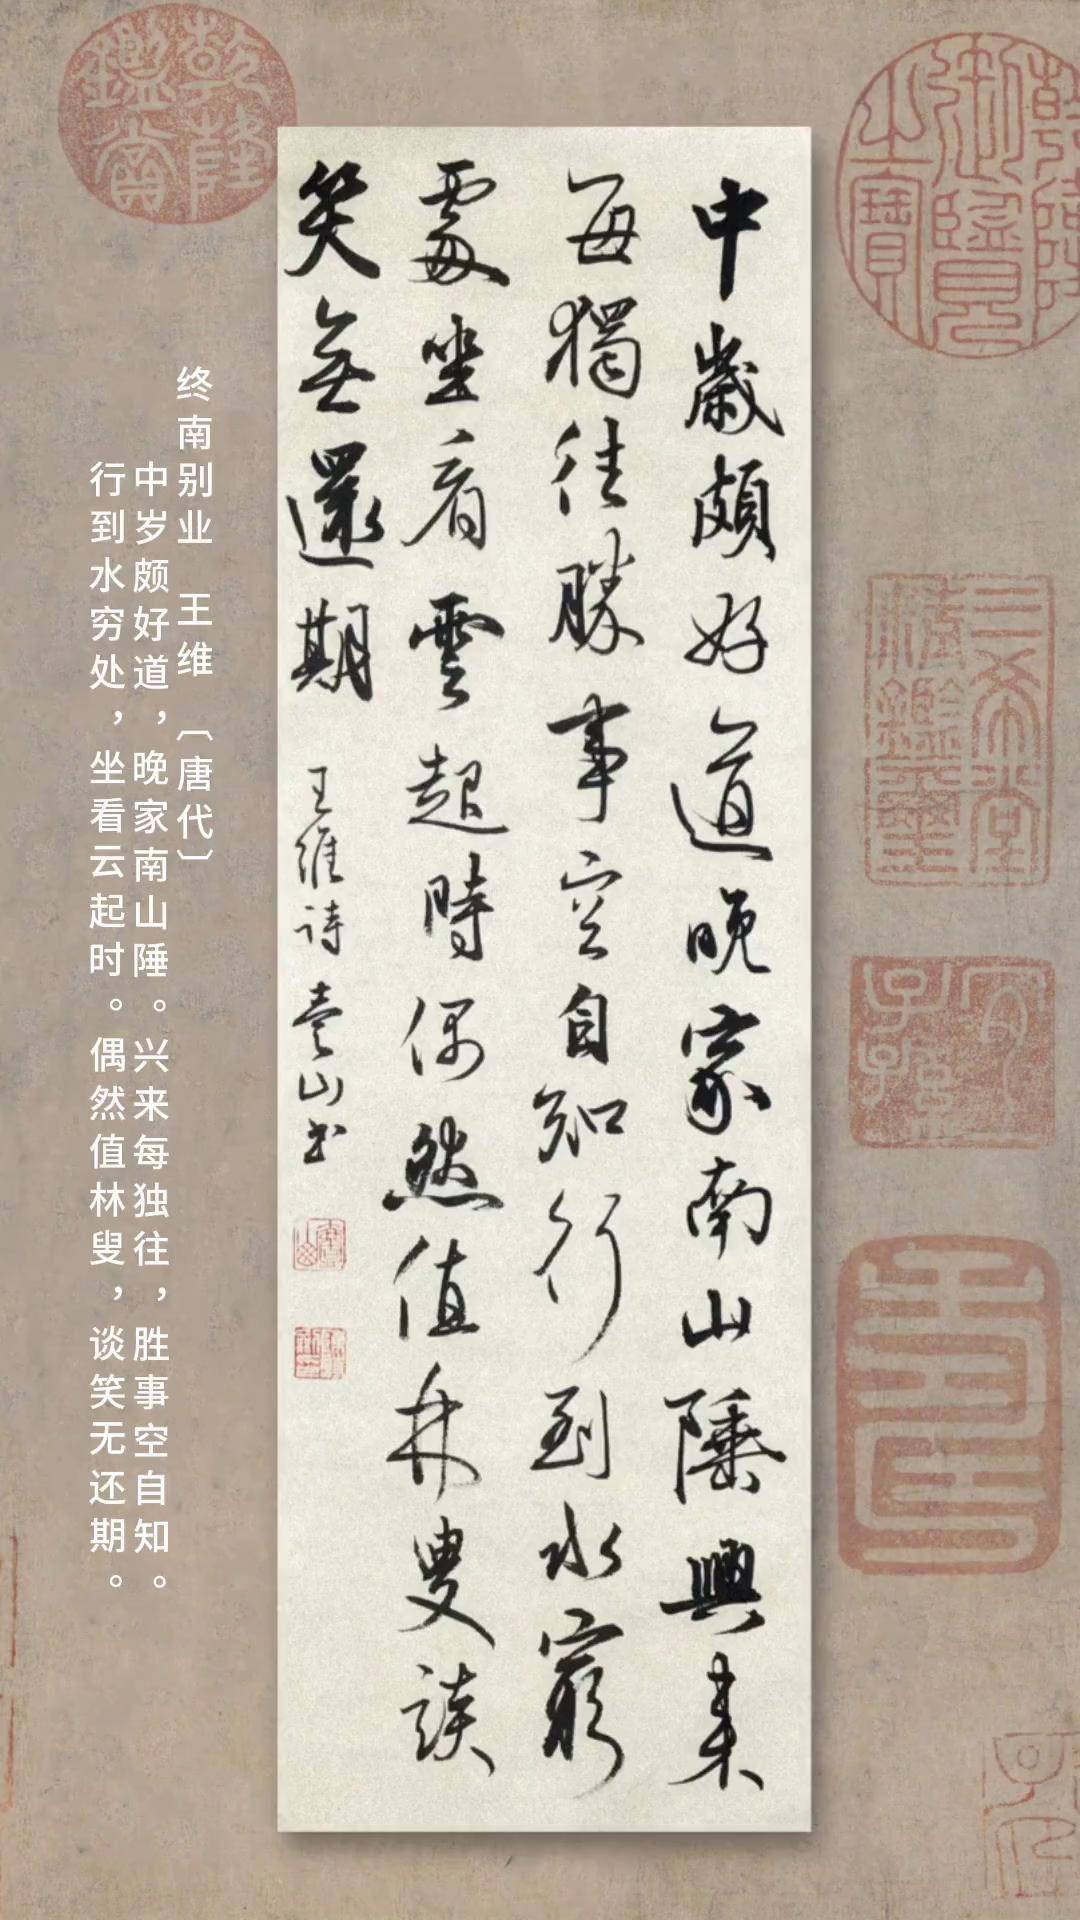 中歲頗好道晚家南山陲興来
每獨往勝事空自知行到水窮
處坐看雲起時偶然值林叟談
笑無還期
王維詩
山书
终南别业 王维〔唐代〕
中岁颇好道，晚家南山陲。兴来每独往，胜事空自知。
行到水穷处，坐看云起时。偶然值林叟，谈笑无还期。
乾隆御覽之寶
乾隆鑑賞
三希堂精鑑璽
宜子孫